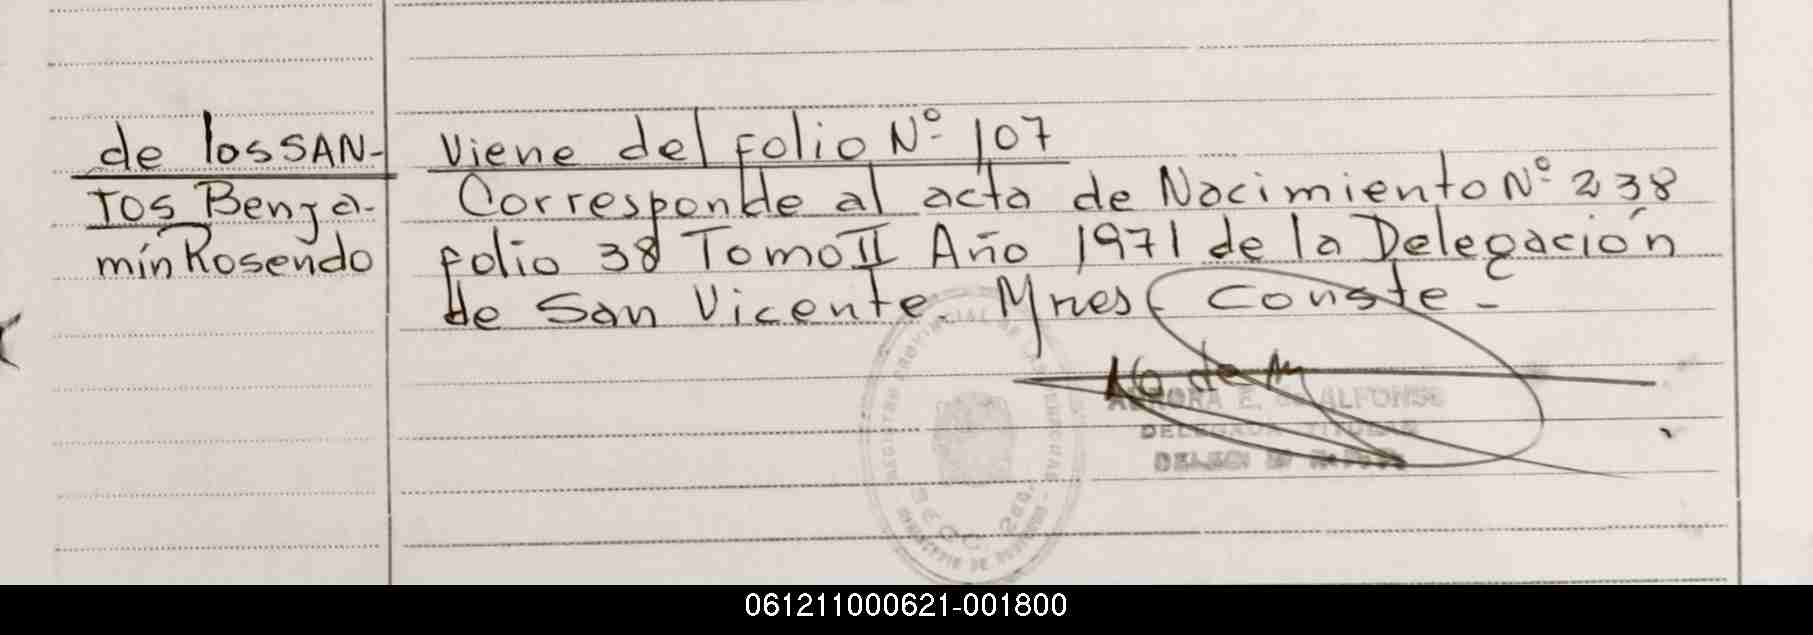 de los SAN-
TOS Benja-
mín Rosendo
Viene del folio Nº 107
Corresponde al acta de Nacimiento Nº 238
folio 38 Tomo II Año 1971 de la Delegación
de San Vicente. Mnes Conste -
E. de ALFONSO
DELEGADA TITULAR
061211000621-001800